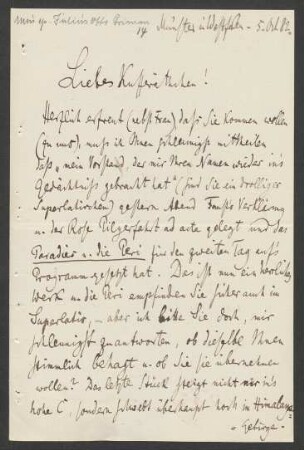 Julius Otto Grimm
Münster in Westfalen - 5. Okt 82.
Liebes Kufferathchen!
Herzlich erfreut (nebst Frau) daß Sie kommen wollen
(zu uns), muß ich Ihnen schleunigst mittheilen
daß mein Vorstand, der mir Ihren Namen wieder ins
Gedächtniß gebracht hat (sind Sie ein drolliges
Superlativchen) gestern Abend Fausts Verklärung
u. der Rose Pilgerfahrt ad acta gelegt und das
Paradies u. die Peri für den zweiten Tag aufs
Programm gesetzt hat. Das ist nun ein herrliches
Werk u. die Peri empfinden Sie sicher auch im
Superlativ, - aber ich bitte Sie doch, mir
schleunigst zu antworten, ob dieselbe Ihnen
stimmlich behagt u. ob Sie sie übernehmen
wollen? Das letzte Stück steigt nicht nur ins
hohe C, sondern schwebt überhaupt hoch im Himalaya-
Gebirge.